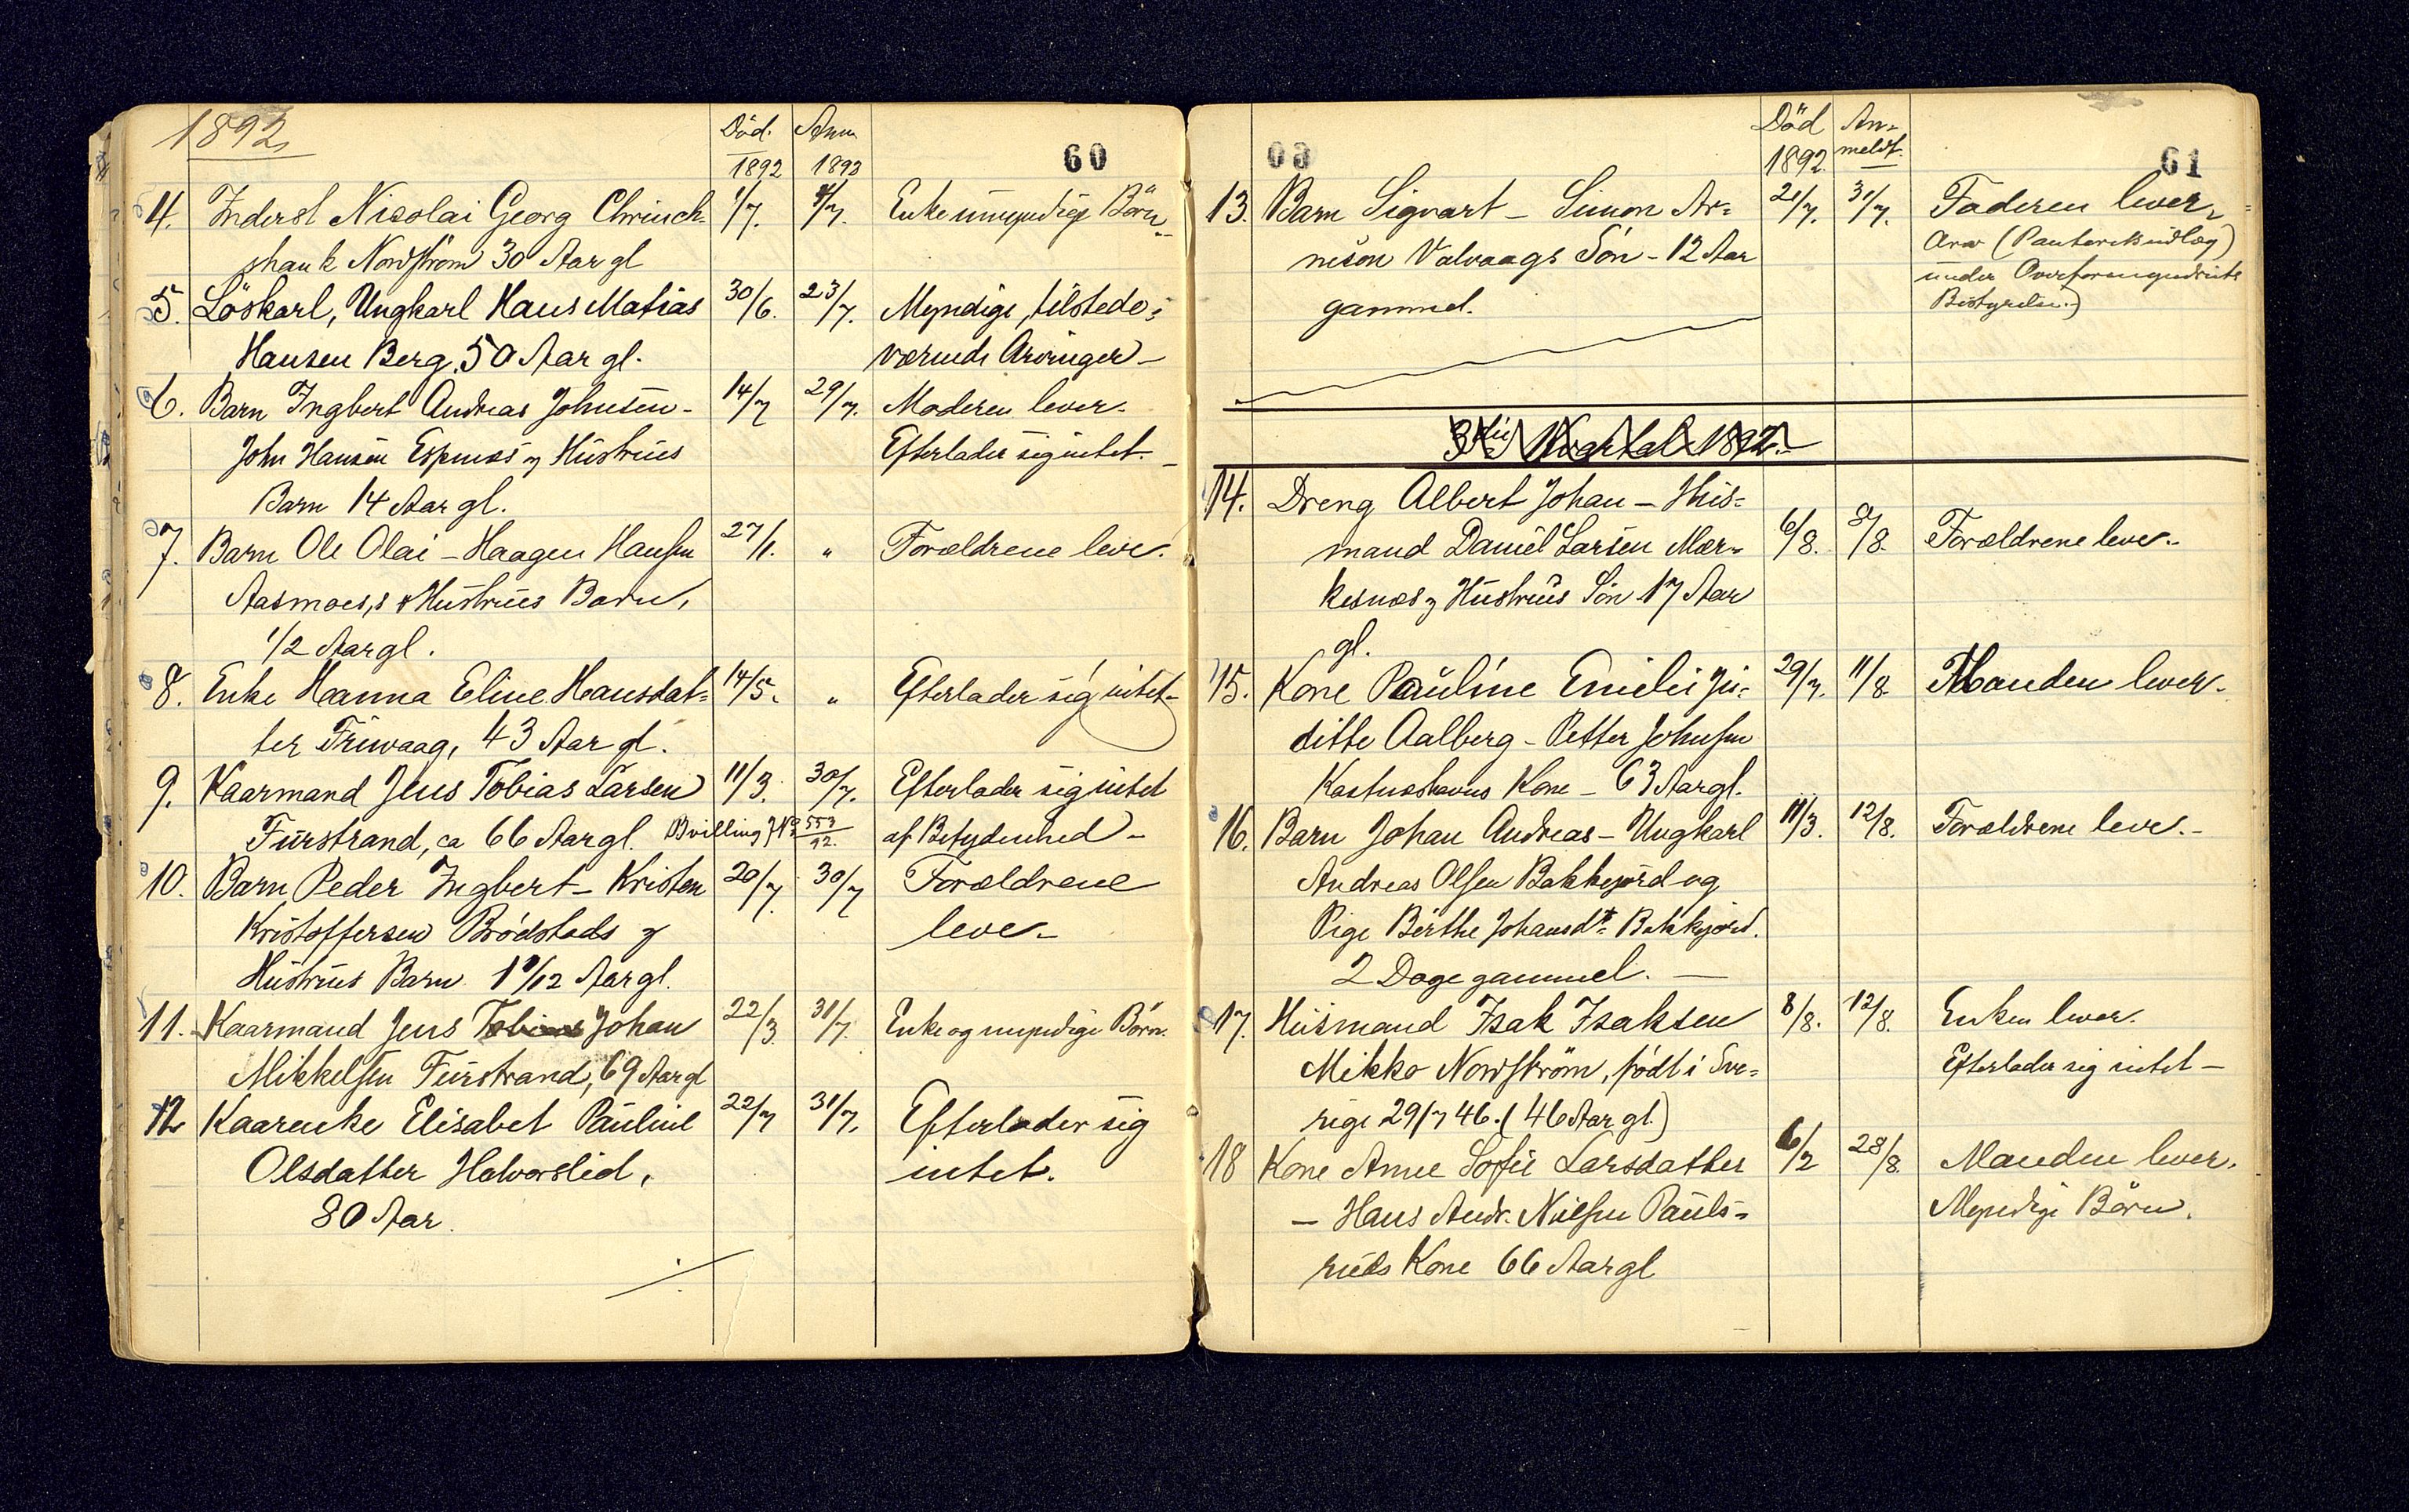 1892
Död. Anm
1892 1892
60
4. Inderst Nicolai Georg
Nordström 30 Aar gl 1/7. Enke umyndige Börn
5. Löskarl, Ungkarl Hans Matias 30/6. 23/7. Myndige, tilstede-
Hansen Berg. 50 Aar gl. værende Arvinger
6. Barn Ingbert Andreas Johnsen - 14/7 29/7. Moderen lever.
John Hansen Espenes og Hustrues Efterlader sig intet.
Barn 14 Aar gl.
7. Barn Ole Olai - Haagen Hansen 27/1. " Forældrene leve.
Aasmoes, s & Hustrues Barn,
1/2 Aar gl.
8. Enke Hanna Eline Hansdat- 14/5. " Efterlader sig intet
ter Finvaag, 43 Aar gl.
9. Kaarmand Jens Tobias Larsen 11/3. 30/7. Efterlader sig intet
Furstrand, ca 66 Aar gl. Bvilling No 553/92. af Betydenhed -
10. Barn Peder Ingbert - Kristen 20/7. 30/7 Forældrene
Kristoffersen Brödstads og leve -
Hustrues Barn Aar gl.
11. Kaarmand Jens Tobias Johan 22/3. 31/7. Enke og myndige Börn.
Mikkelsen Furstrand, 69 Aar gl
12 Kaarenke Elisabet Pauline 22/7 31/7. Efterlader sig
Olsdatter Halvorslid, intet.
80 Aar.
Död An-
1892. meldt.
60
61
13. Barn Sigvart - Simon Ar- 21/7. 31/7. Faderen lever,
nesön Valvaags Sön - 12 Aar Arv (Panterettsudlæg)
gammel. under Overformynderiets
Bestyrelse.)
3die Kvartal 1892.
14. Dreng Albert Johan - Hus-
mand Daniel Larsen Mær- 6/8. 8/8. Forældrene leve.
kesnes og Hustrues Sön 17 Aar
gl.
15. Kone Pauline Emilie Ju- 29/7. 11/8 Manden lever.
ditte Aalberg - Petter Johnsen
Kastneshavns Kone - 63 Aar gl.
16. Barn Johan Andreas - Ungkarl 11/3. 12/8. Forældrene leve. -
Andreas Olsen Bakkejord og
Pige Berthe Johansdtr Bakkejord.
2 Dage gammel. -
17. Husmand Isak Isaksen 8/8. 12/8. Enken lever.
Mikko Nordström, födt i Sve- Efterlader sig intet -
rige 29/7 46. (46 Aar gl.)
18 Kone Anne Sofie Larsdatter 6/2 28/8. Manden lever.
- Hans Andr. Nilsen Pauls- Myndige Börn.
ruds Kone 66 Aar gl